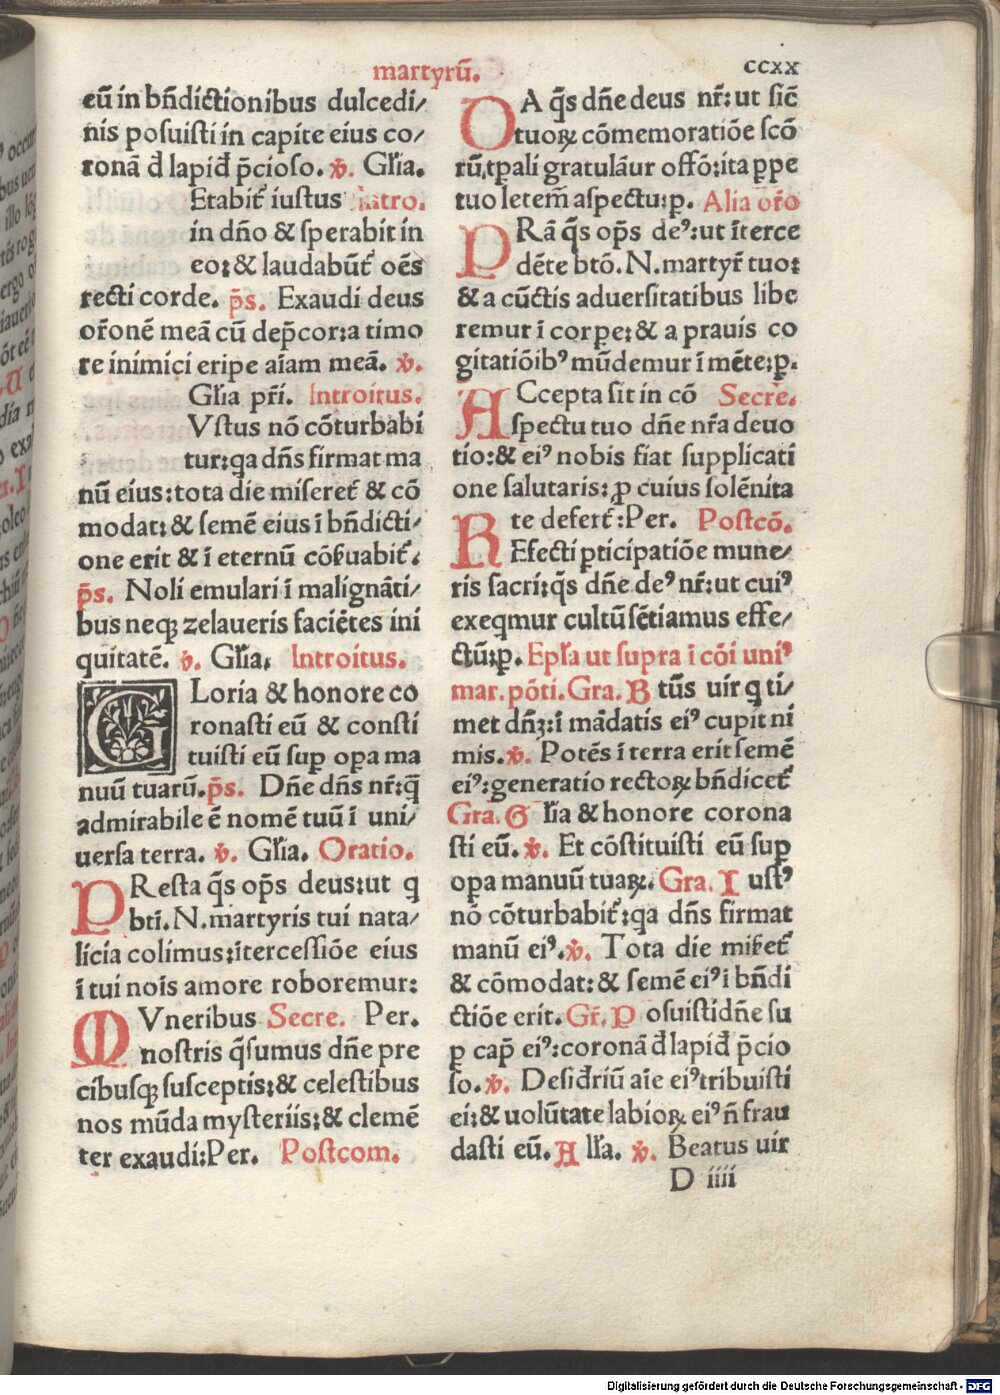 martyrū.
ccxx
eū in bn̄dictionibus dulcedi/
nis posuisti in capite eius co/
ronā đ lapiđ p̄cioso. ꝟ. Gl̄ia.
Etabit᷑ iustus Intro.
in dn̄o & sperabit in
eo: & laudabūt᷑ oēs
recti corde. p̄s. Exaudi deus
or̄onē meā cū dep̄cor: a timo
re inimici eripe aīam meā. ꝟ.
Gl̄ia pr̄i. Introitus.
Vstus nō cōturbabi
tur: qa dn̄s firmat ma
nū eius: tota die miseret᷑ & cō
modat: & semē eius ī bn̄dicti/
one erit & ī eternū cōẜuabit᷑.
p̄s. Noli emulari ī malignāti/
bus neqꝫ zelaueris faciētes ini
quitatē. ꝟ. Gl̄ia. Introitus.
GLoria & honore co
ronasti eū & consti
tuisti eū suꝑ opa ma
nuū tuarū. p̄s. Dn̄e dn̄s nr̄: q̄
admirabile ē nomē tuū ī uni/
uersa terra. ꝟ. Gl̄ia. Oratio.
PResta q̄s op̄s deus: ut q
bti. N. martyris tui nata/
licia colimus: ītercessiōe eius
ī tui nois amore roboremur:
MVneribus Secre. Per.
nostris q̄sumus dn̄e pre
cibusqꝫ susceptis: & celestibus
nos mūda mysteriis: & clemē
ter exaudi: Per. Postcom.
DA q̄s dn̄e deus nr̄: ut sic̄
tuoꝝ cōmemoratiōe scō
rū, tpali gratulāur offō: ita ꝑpe
tuo letem̄ aspectu: p. Alia or̄o
PRā q̄s op̄s deꝰ: ut īterce
dēte btō. N. martyr̄ tuo:
& a cūctis aduersitatibus libe
remur ī corpe: & a prauis co
gitatiōibꝰ mūdemur ī mēte: p.
ACcepta sit in cō Secre.
spectu tuo dn̄e nr̄a deuo
tio: & eiꝰ nobis fiat supplicati
one salutaris: ꝓ cuius solēnita
te defert᷑: Per. Postcō.
REfecti ꝑticipatiōe mune/
ris sacri: q̄s dn̄e deꝰ nr̄: ut cuiꝰ
exeqmur cultū sētiamus effe/
ctū: p. Epl̄a ut supra ī cōi uniꝰ
mar. pōti. Gra. B tūs uir q ti/
met dn̄ꝫ: ī mādatis eiꝰ cupit ni
mis. ꝟ. Potēs ī terra erit semē
eiꝰ: generatio rectoꝝ bn̄dicet᷑
Gra. G l̄ia & honore corona
sti eū. ꝟ. Et cōstituisti eū suꝑ
opa manuū tuaꝝ. Gra. I ustꝰ
nō cōturbabit᷑: qa dn̄s firmat
manū eiꝰ. ꝟ. Tota die miẜet᷑
& cōmodat: & semē eiꝰ ī bn̄di
ctiōe erit. Gr̄. P osuisti dn̄e su
ꝑ cap̄ eiꝰ: coronā đ lapiđ p̄cio
so. ꝟ. Desiđriū aīe eiꝰ tribuisti
ei: & uolūtate labioꝝ eiꝰ n̄ frau
dasti eū. A ll̄a. ꝟ. Beatus uir
D iiii
Digitalisierung gefördert durch die Deutsche Forschungsgemeinschaft - DFG